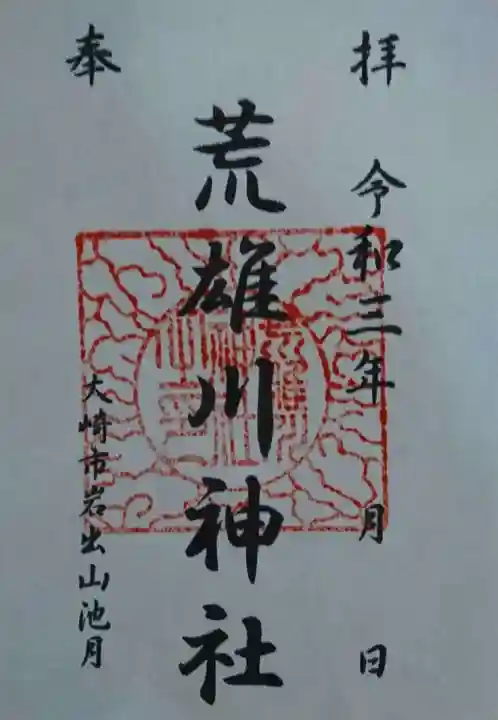 奉拝
荒雄川神社
令和三年 月 日
大崎市岩出山池月